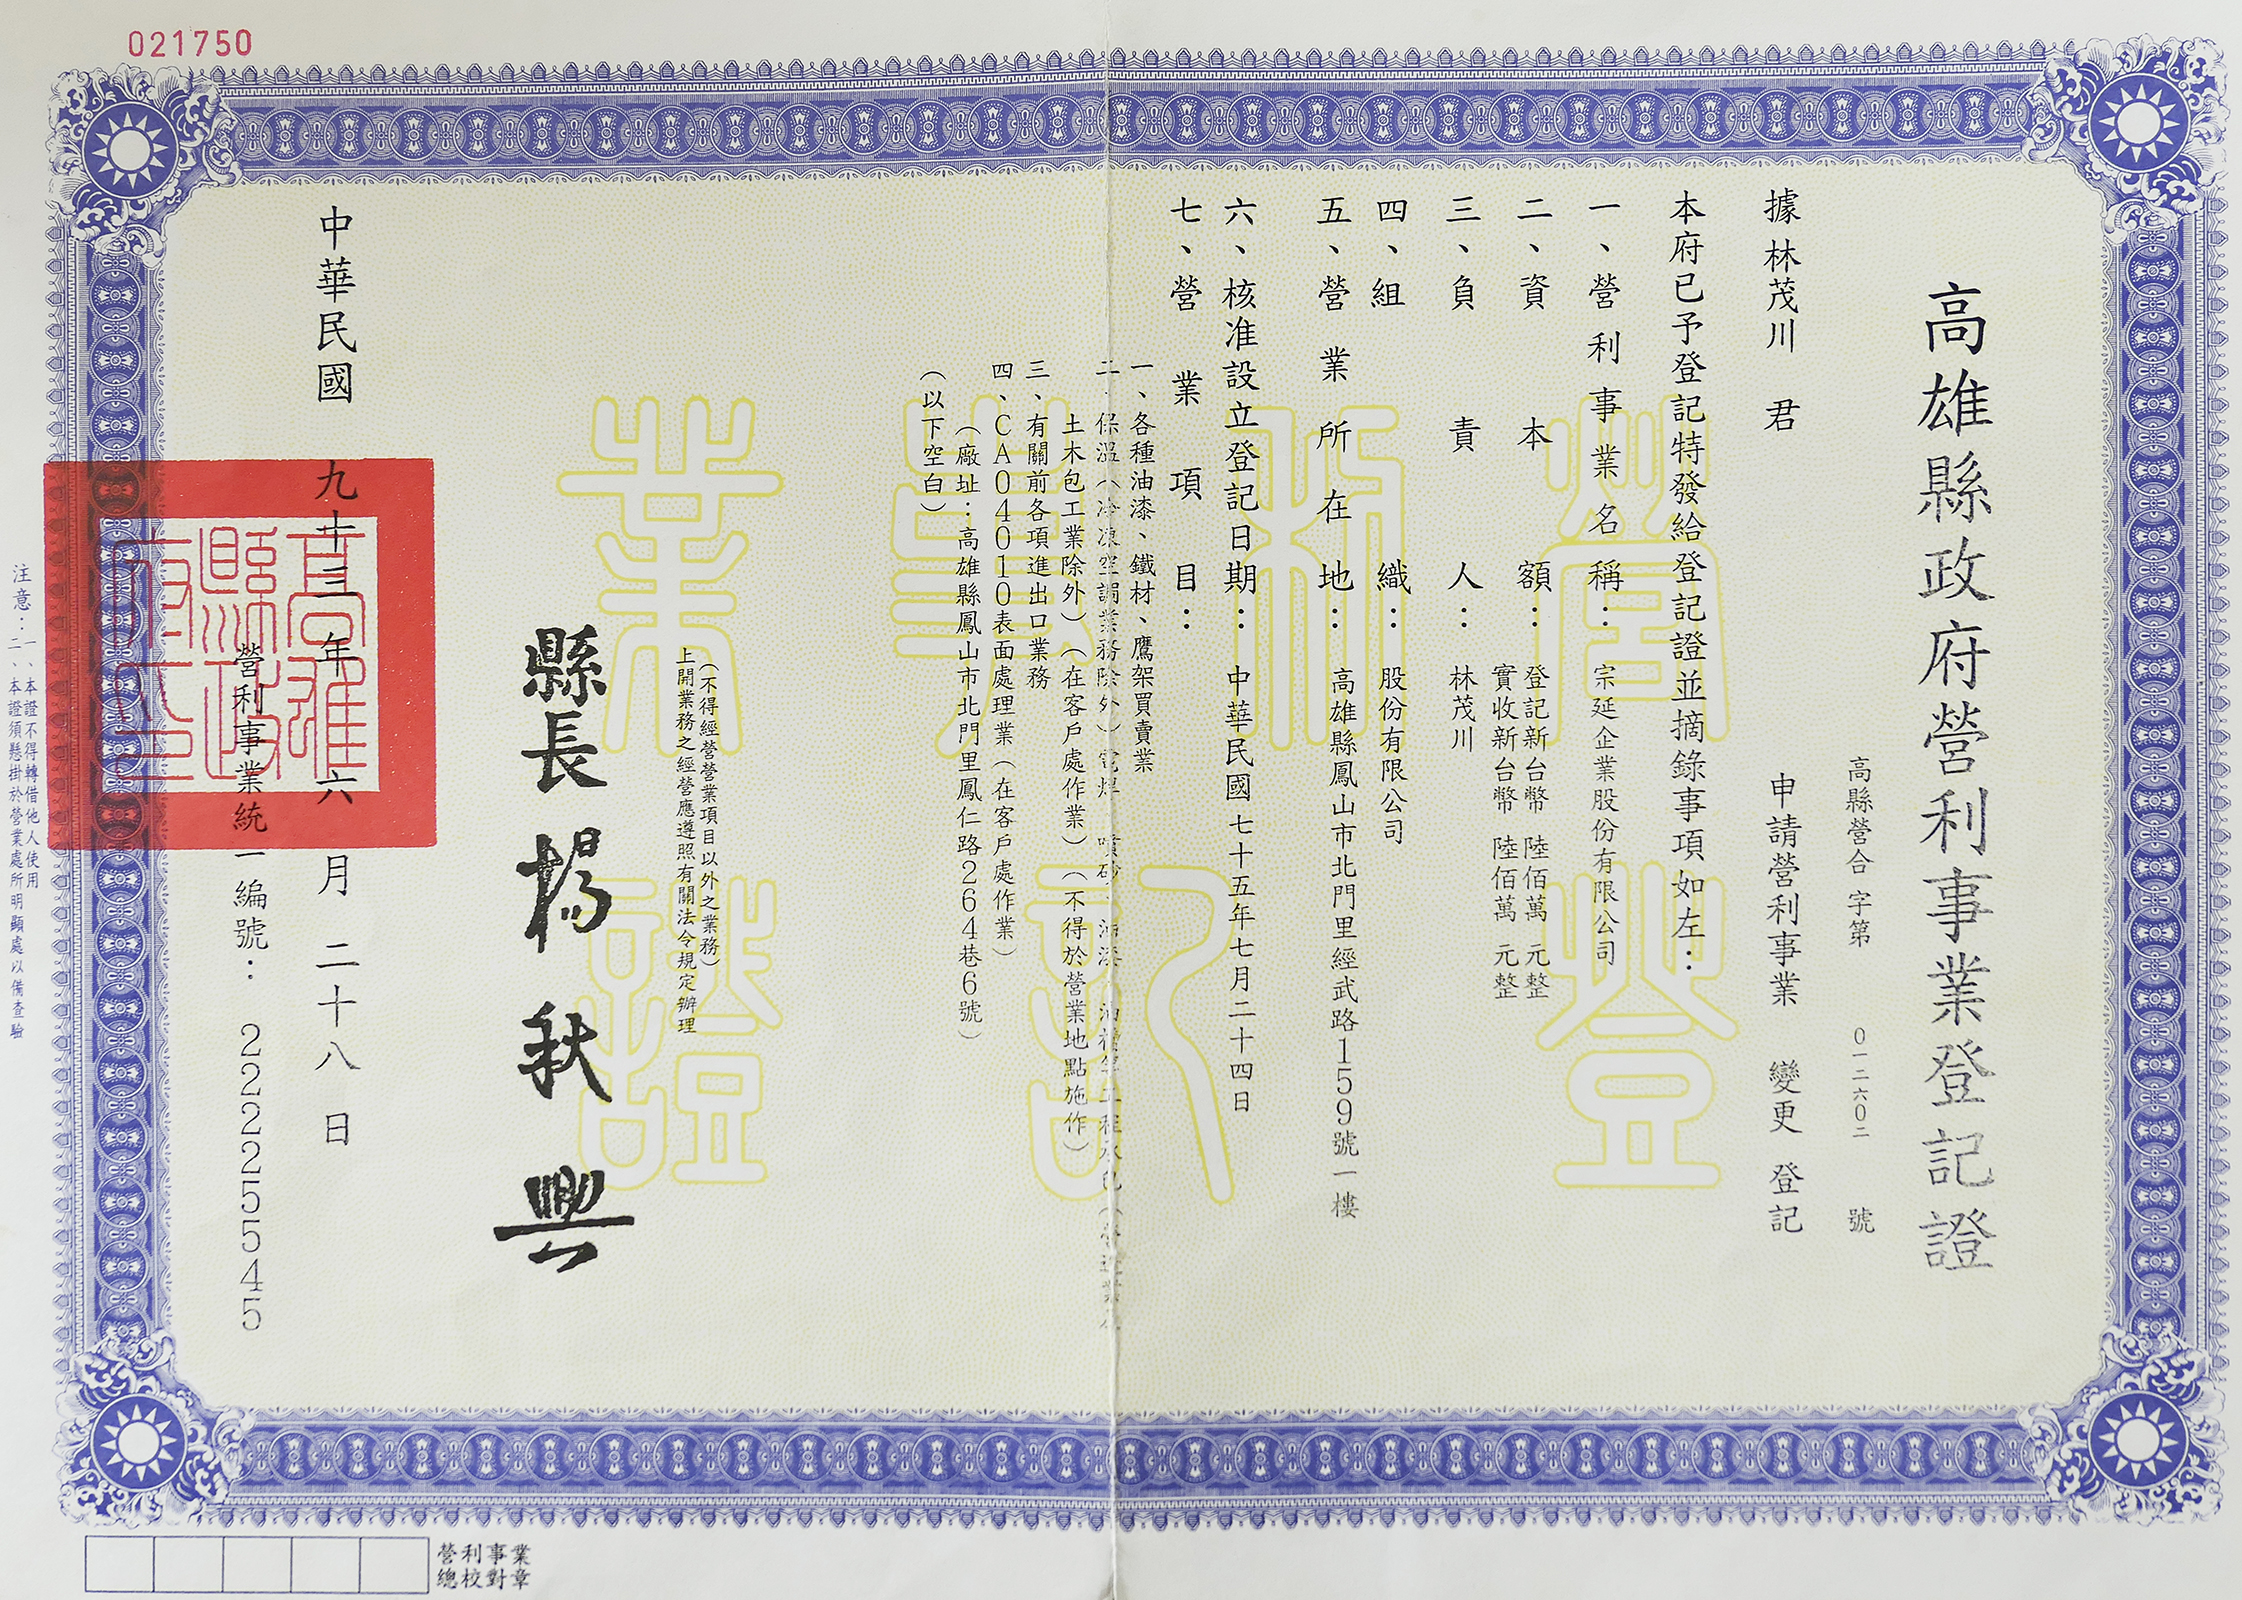 021750
高雄縣政府營利事業登記證
高縣營合字第 0一二六0二 號
據林茂川 君 申請營利事業 變更 登記
本府已予登記特發給登記證並摘錄事項如左：
一、營利事業名稱：宗延企業股份有限公司
二、資本額：登記新台幣 陸佰萬 元整
實收新台幣 陸佰萬 元整
三、負責人：林茂川
四、組織：股份有限公司
五、營業所在地：高雄縣鳳山市北門里經武路159號一樓
六、核准設立登記日期：中華民國七十五年七月二十四日
七、營業項目：
一、各種油漆、鐵材、鷹架買賣業
二、保溫（冷凍空調業務除外）電焊 噴砂、油漆
土木包工業除外）（在客戶處作業）（不得於營業地點施作）
三、有關前各項進出口業務
四、CA04010表面處理業（在客戶處作業）
（廠址：高雄縣鳳山市北門里鳳仁路264巷6號）
（以下空白）
（不得經營營業項目以外之業務）
上開業務之經營應遵照有關法令規定辦理
縣長 楊秋興
中華民國 九十三 年 六 月 二十八 日
營利事業統一編號：22225545
高雄縣政府印
注意：一、本證不得轉借他人使用
二、本證須懸掛於營業處所明顯處以備查驗
營利事業登記證
營利事業
總校對章